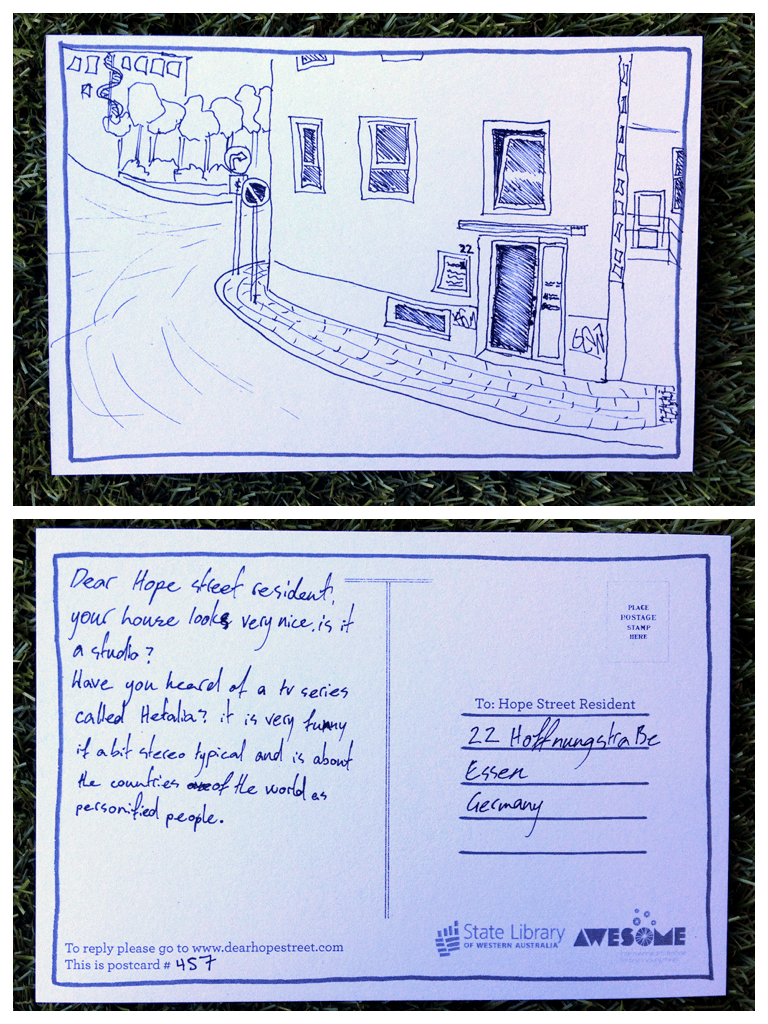 22
Dear Hope street resident,
your house looks very nice. is it
a studio?
Have you heard of a tv series
called Hetalia? it is very funny
if a bit stereo typical and is about
the countries of the world as
personified people.
To reply please go to www.dearhopestreet.com
This is postcard # 457
PLACE
POSTAGE
STAMP
HERE
To: Hope Street Resident
22 Hoffnungstraße
Essen
Germany
State Library
OF WESTERN AUSTRALIA
AWESOME